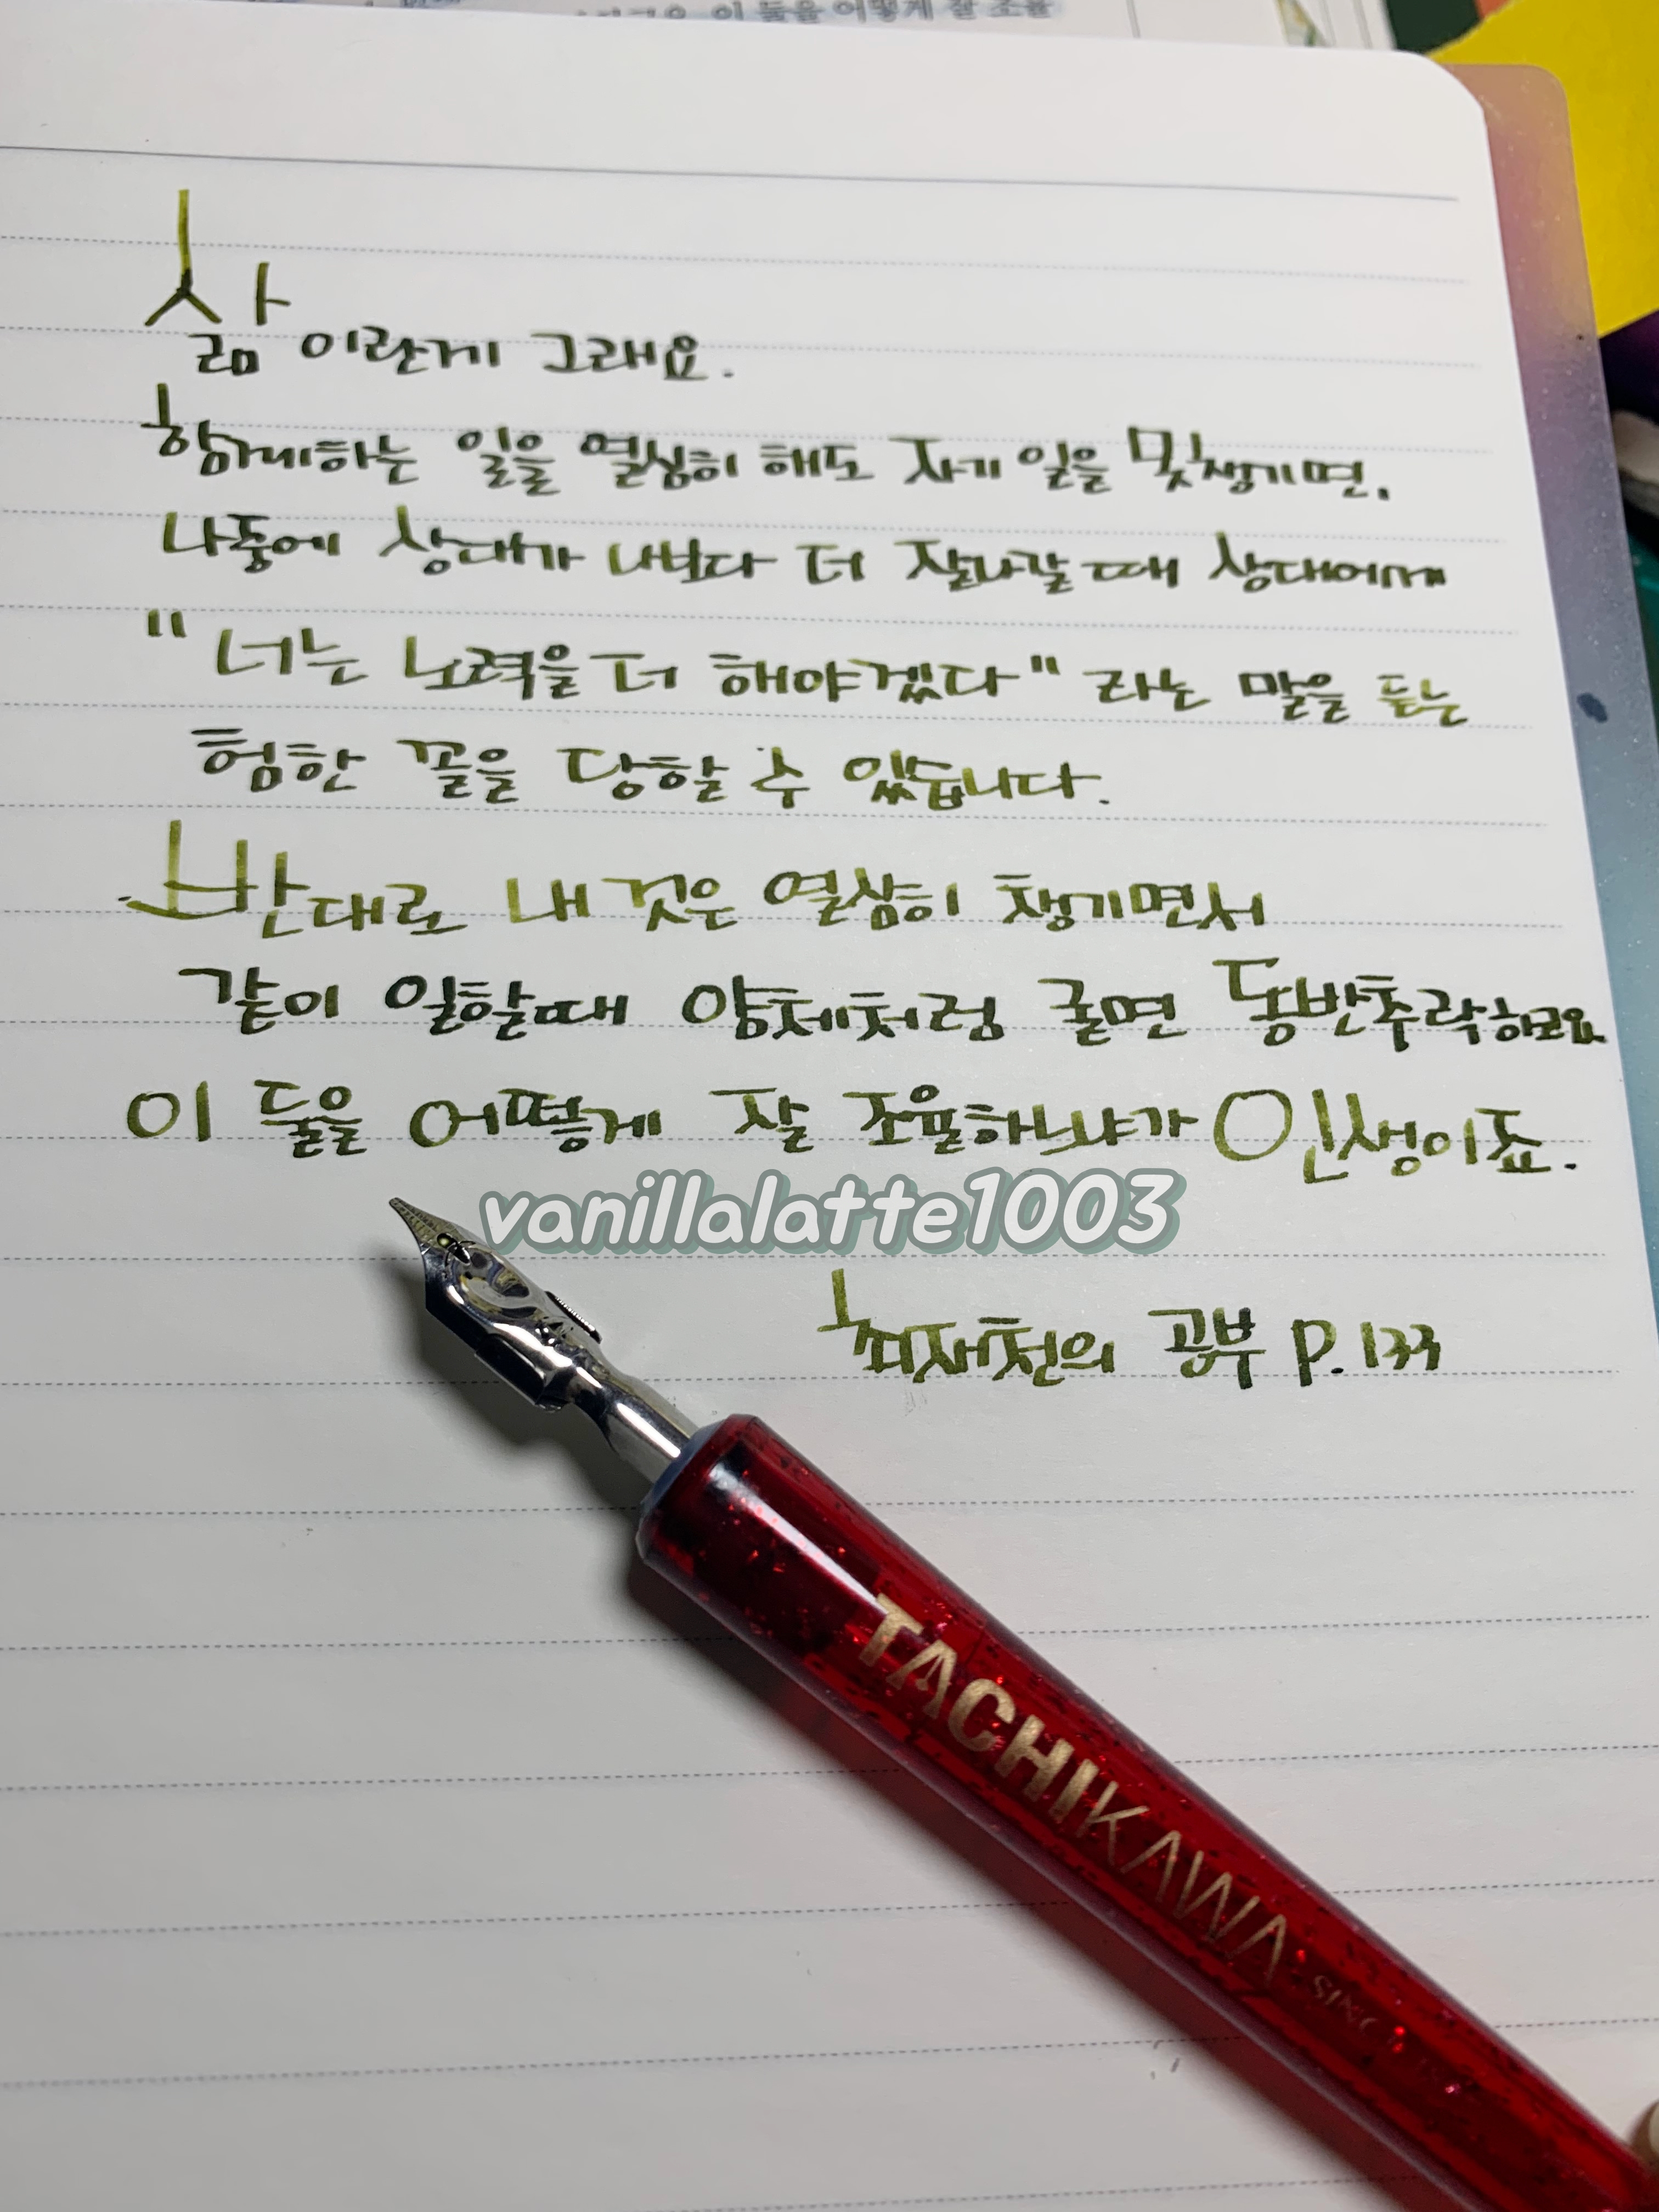 이 둘을 어떻게 잘 조율
삶이란게 그래요.
함께하는 일을 열심히 해도 자기 일을 못챙기면,
나중에 상대가 나보다 더 잘나갈 때 상대에게
"너는 노력을 더 해야겠다" 라는 말을 듣는
험한 꼴을 당할 수 있습니다.
반대로 내 것은 열심히 챙기면서
같이 일할때 얌체처럼 굴면 동반추락하고요
이 둘을 어떻게 잘 조율하느냐가 인생이죠.
vanillalatte1003
최재천의 공부 p.133
TACHIKAWA